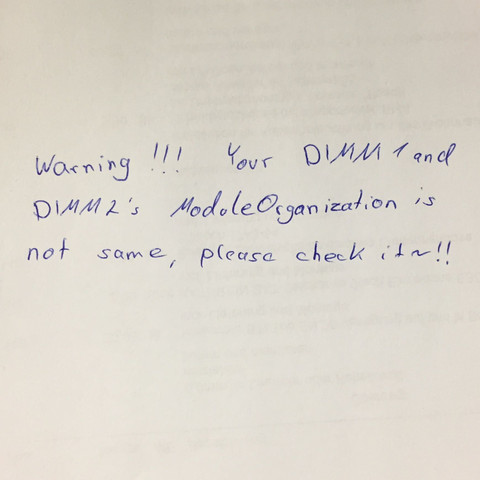 Warning !!! Your DIMM1 and
DIMM2's ModuleOrganization is
not same, please check it~!!